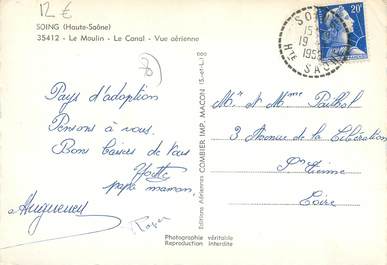 12 €
SOING (Haute-Saône)
35412 - Le Moulin - Le Canal - Vue aérienne
Pays d'adoption
Pensons à vous.
Bons baisers de tous
Yvette
papa maman,
Roger
Editions Aériennes COMBIER IMP. MACON (S.-et-L.)
Photographie véritable
Reproduction interdite
SOING
19
Hte SAONE
20F
Mr et Mme
3 Avenue de la Libération
St Etienne
Loire